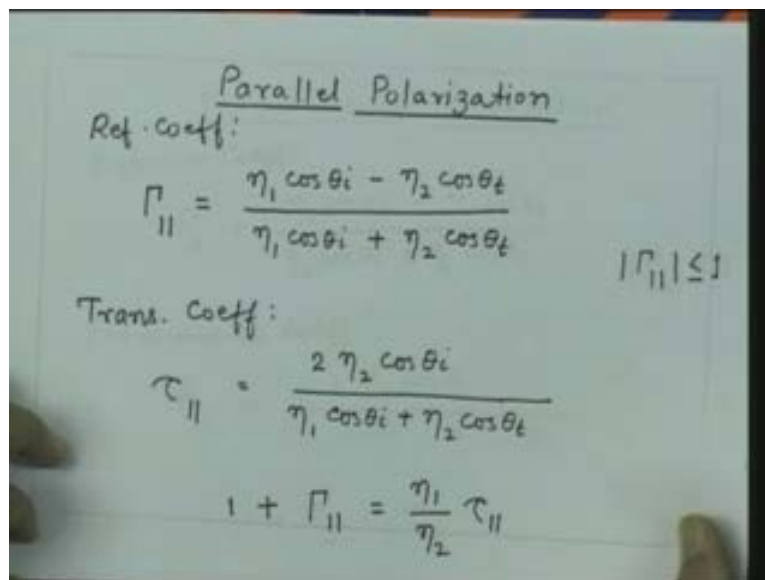 Parallel Polarization
Ref. Coeff:
Γ_|| = (η₁ cos θi - η₂ cos θt) / (η₁ cos θi + η₂ cos θt)
|Γ_||| ≤ 1
Trans. Coeff:
τ_|| = 2 η₂ cos θi / (η₁ cos θi + η₂ cos θt)
1 + Γ_|| = η₁/η₂ τ_||